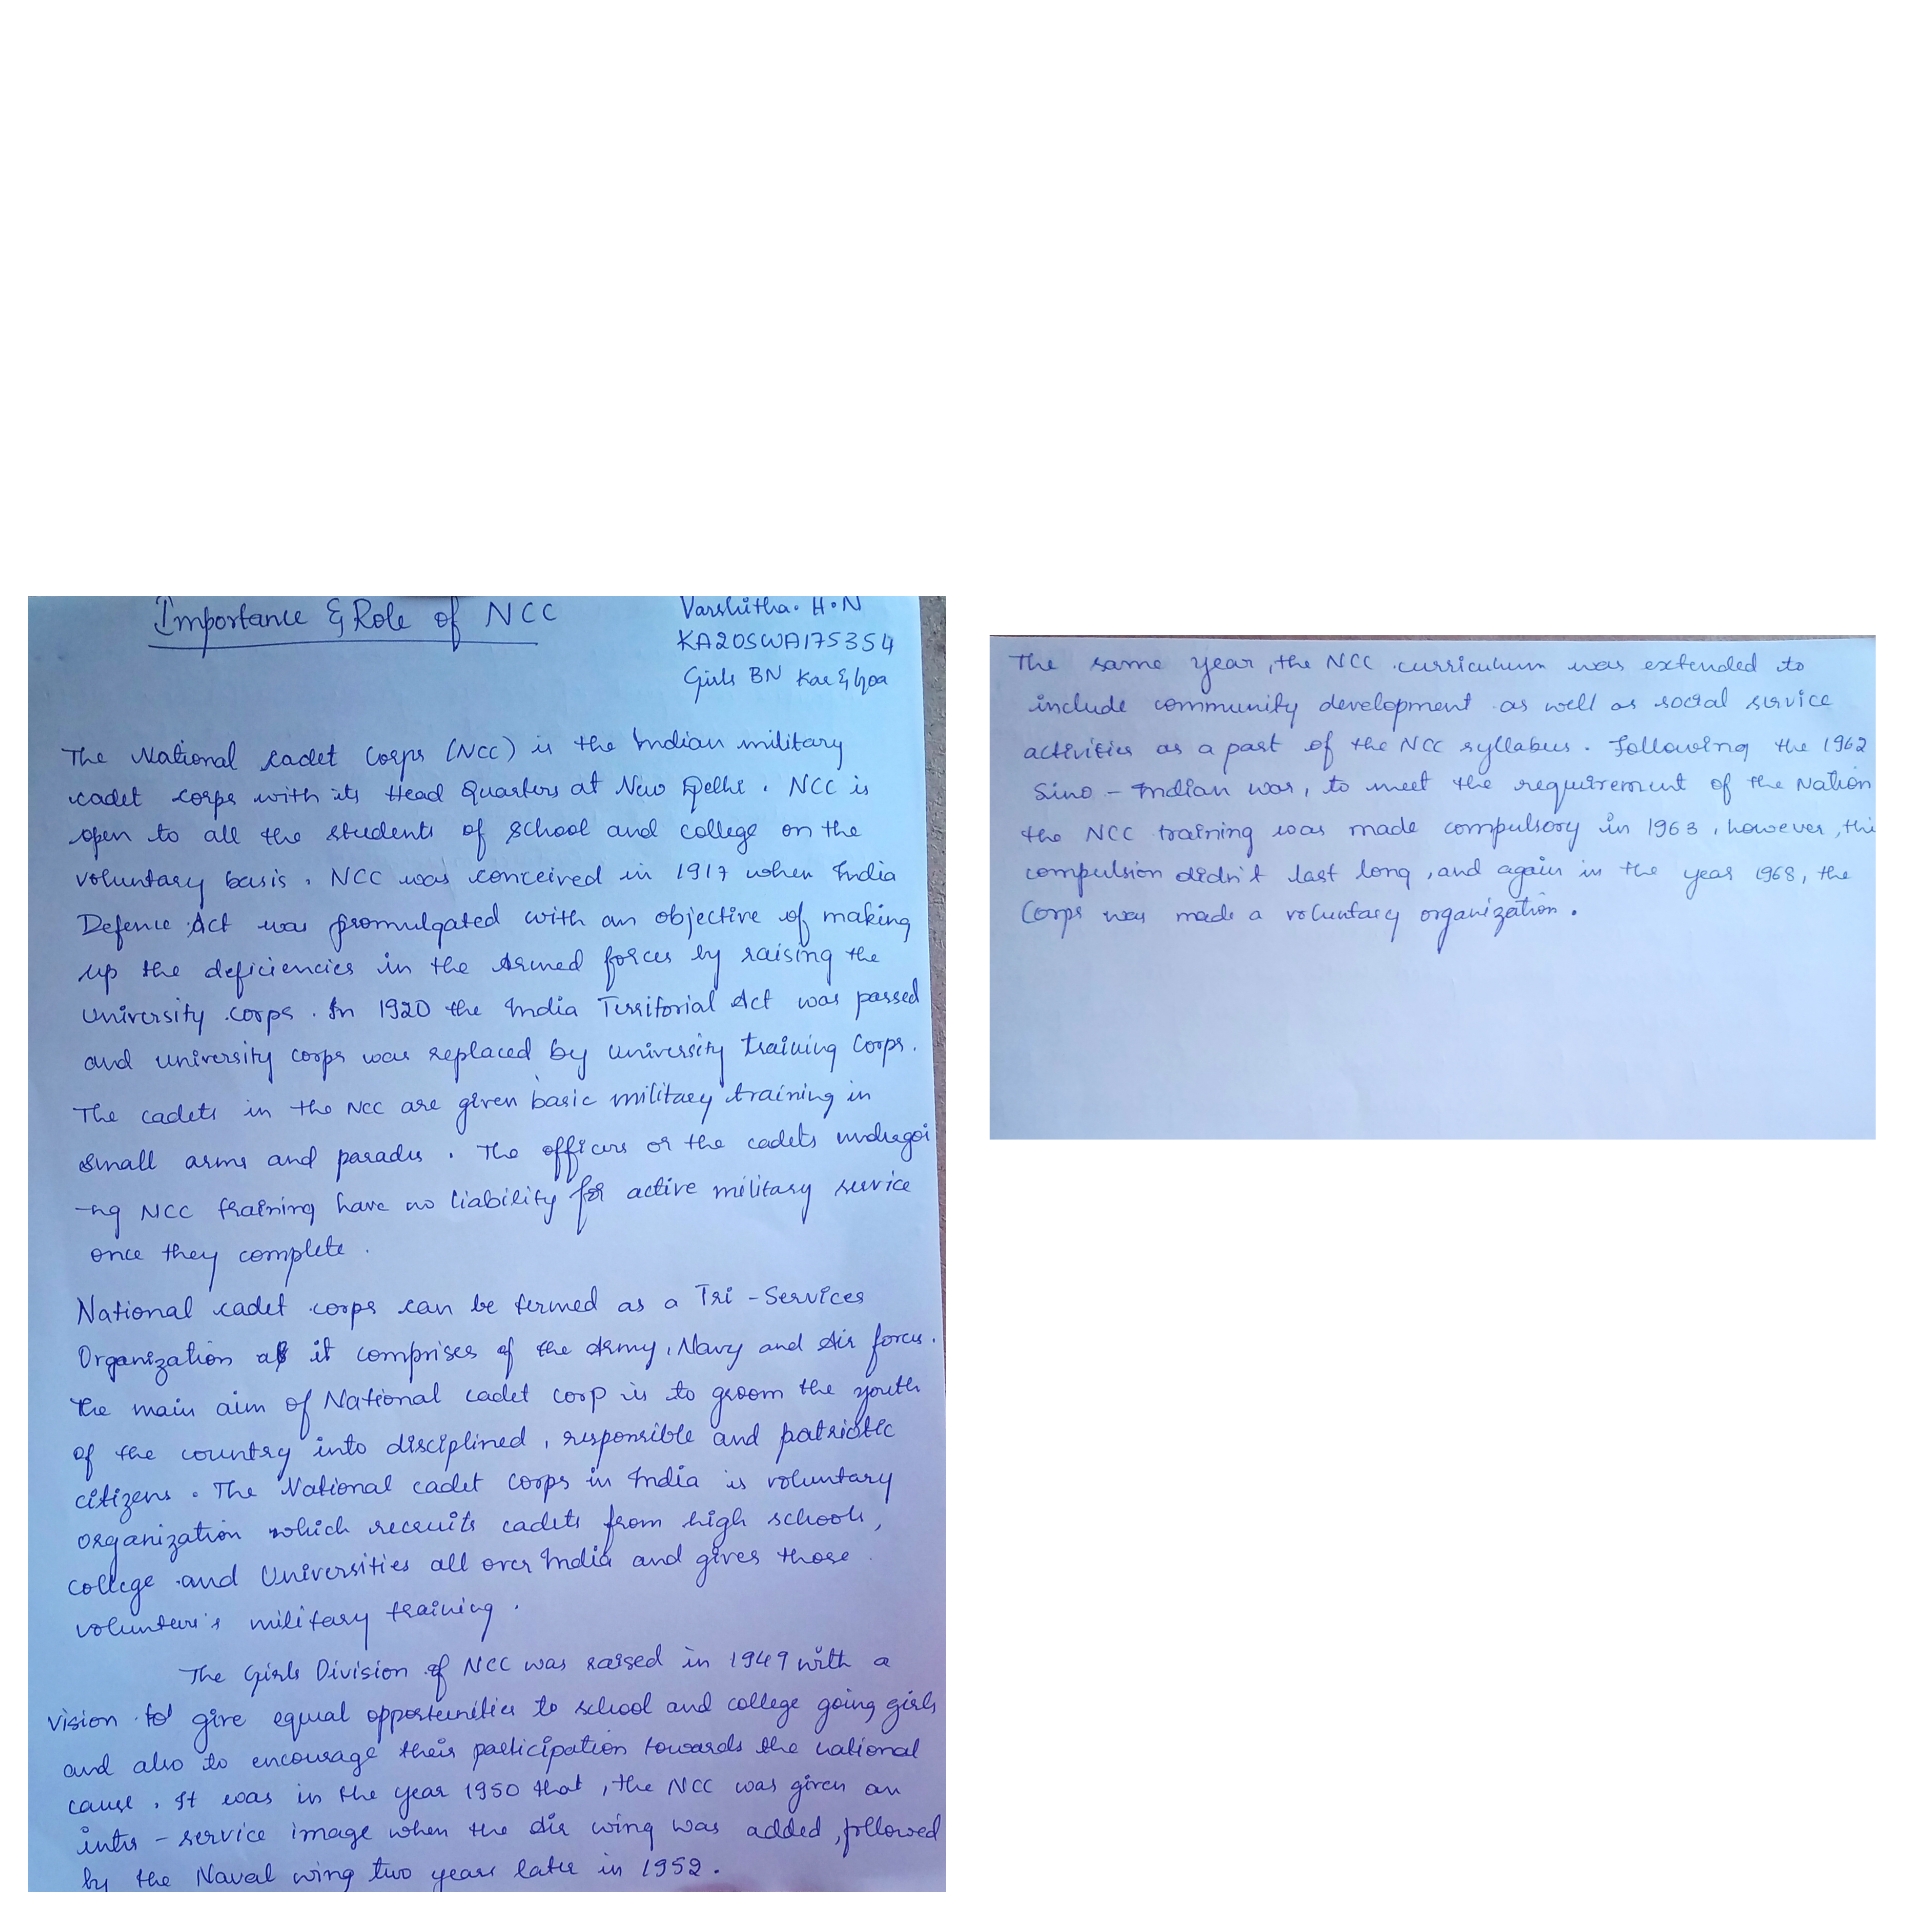 Importance & Role of NCC
Varshitha. H.N
KA20SWA175354
Girls BN Kar & Goa
The National cadet Corps (NCC) is the Indian military
cadet corps with its Head Quarters at New Delhi. NCC is
open to all the students of school and college on the
voluntary basis. NCC was conceived in 1917 when India
Defence Act was promulgated with an objective of making
up the deficiencies in the Armed forces by raising the
University corps. In 1920 the India Territorial Act was passed
and university corps was replaced by university training Corps.
The cadets in the NCC are given basic military training in
small arms and parades. The officers or the cadets undregoi
-ng NCC training have no liability for active military service
once they complete.
National cadet corps can be termed as a Tri - Services
Organization as it comprises of the Army, Navy and Air force.
The main aim of National cadet corp is to groom the youth
of the country into disciplined, responsible and patriotic
citizens. The National cadet corps in India is voluntary
organization which recruits cadets from high schools,
college and Universities all over India and gives those
volunteer's military training.
The Girls Division of NCC was raised in 1949 with a
vision to give equal opportunities to school and college going girls
and also to encourage their participation towards the national
cause. It was in the year 1950 that, the NCC was given an
inter - service image when the Air wing was added, followed
by the Naval wing two years later in 1952.
The same year, the NCC curriculum was extended to
include community development as well as social service
activities as a part of the NCC syllabus. Following the 1962
Sino - Indian war, to meet the requirement of the Nation
the NCC training was made compulsory in 1963, however, thi
compulsion didn't last long, and again in the year 1968, the
Corps was made a voluntary organization.